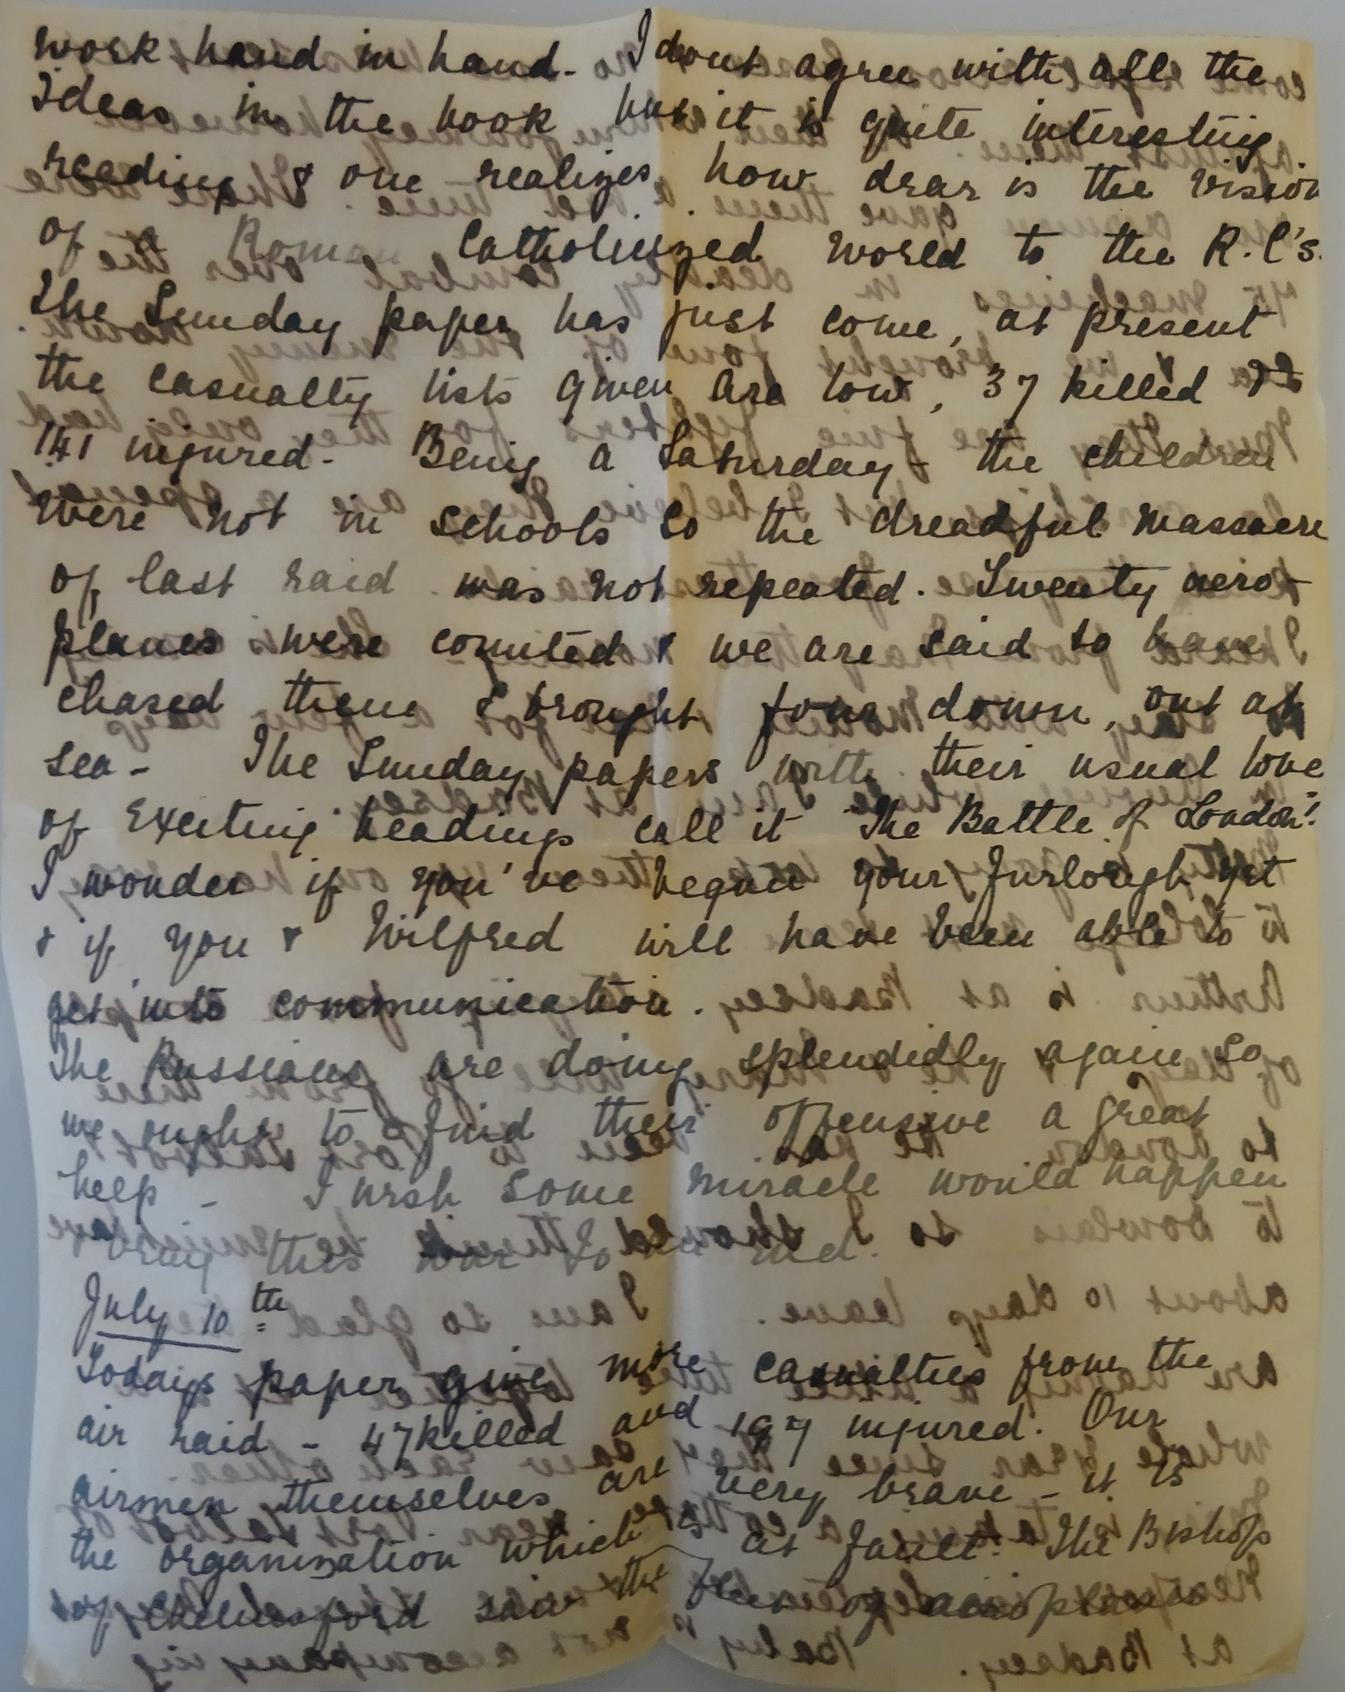 work hand in hand - I dont agree with all the
ideas in the book but it is quite interesting
reading & one realizes how dear is the vision
of a Roman Catholicized world to the R.C's.
The Sunday paper has just come, at present
the casualty lists given are low, 37 killed &
141 injured - Being a Saturday - the children
were not in schools so the dreadful massacre
of last raid was not repeated. Twenty aero-
planes were counted & we are said to have
chased them & brought four down, out at
sea - The Sunday papers with their usual love
of exciting headings call it "The Battle of London".
I wonder if you've begun your furlough yet
& if you & Wilfred will have been able to
get into communication.
The Russians are doing splendidly again so
we ought to find their offensive a great
help - I wish some miracle would happen
to bring this war to an end.
July 10th
Todays paper give more casualties from the
air raid - 47 killed and 197 injured. Our
airmen themselves are very brave - it is
the organization which is at fault. The Bishop
of Chelmsford saw the fleet of aeroplanes